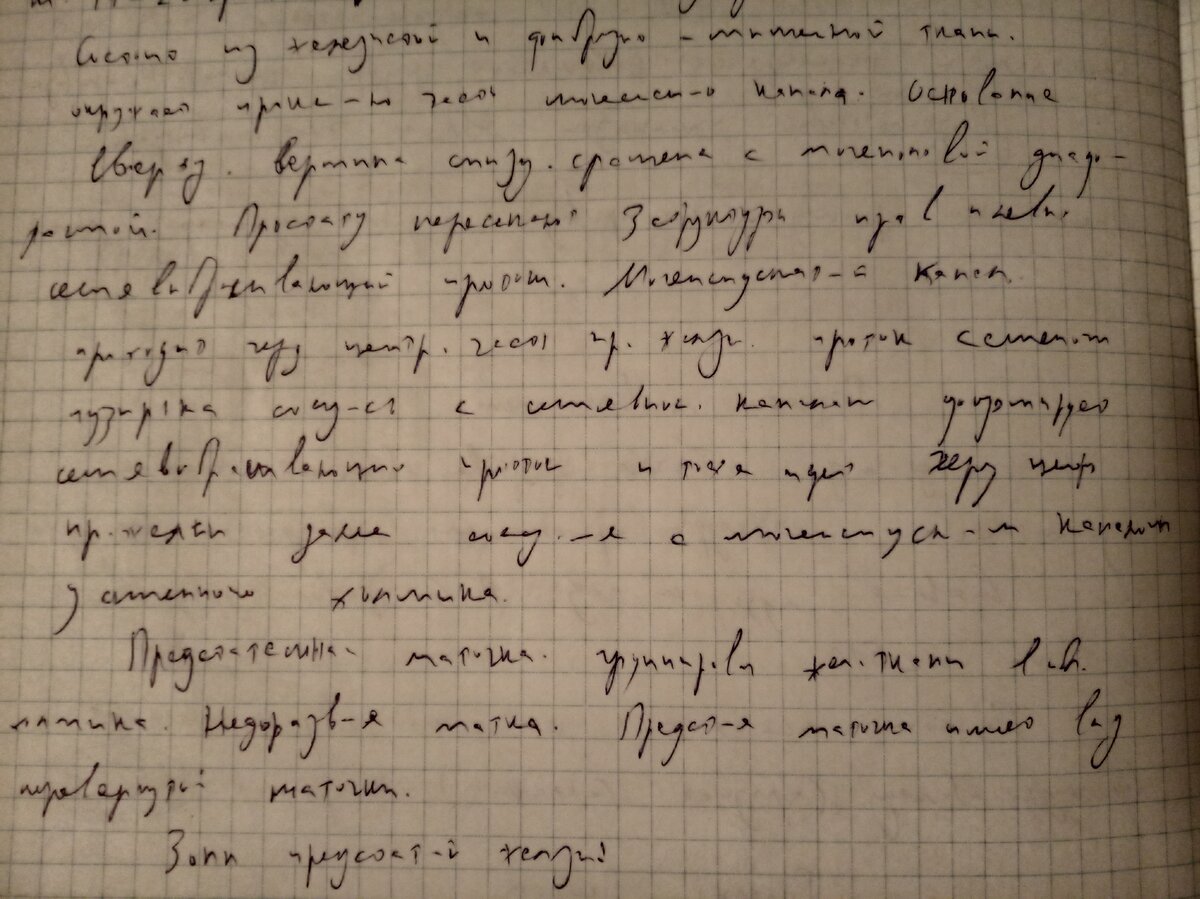 Состоит из железистой и фиброзно-мышечной ткани.
окружает прокс-ю часть мочеисп-о канала. Основание
вверху. вершина снизу. сращена с мочеполовой диаф-
рагмой. Простату пересекают 3 структуры прав и лев.
семявыбрасывающий проток. Мочеиспускат-й канал
проходит через центр. часть пр. желез. проток семенного
пузырька соед-ся с семявын. каналом формирует
семявыбрасывающий проток и тоже идет через центр
пр. железы далее соед.-я с мочеиспуск-м каналом
у семенного холмика.
Предстательная маточка. группировка жел. ткани в обл.
холмика. Недоразв-я матка. Предст-я маточка имеет вид
перевернутой маточки.
Зоны предстат-й железы